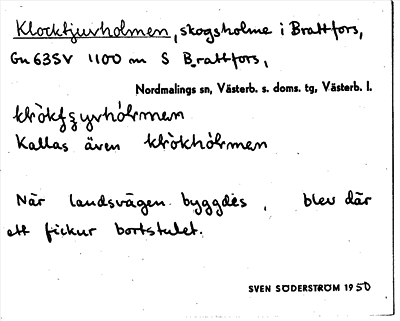 Klocktjuvholmen, skogsholme i Brattfors,
Gn 63SV 1100 m S Brattfors,
Nordmalings sn, Västerb. s. doms. tg, Västerb. l.
Kallas även
När landsvägen byggdes, blev där
ett fickur bortstulet.
SVEN SÖDERSTRÖM 1950